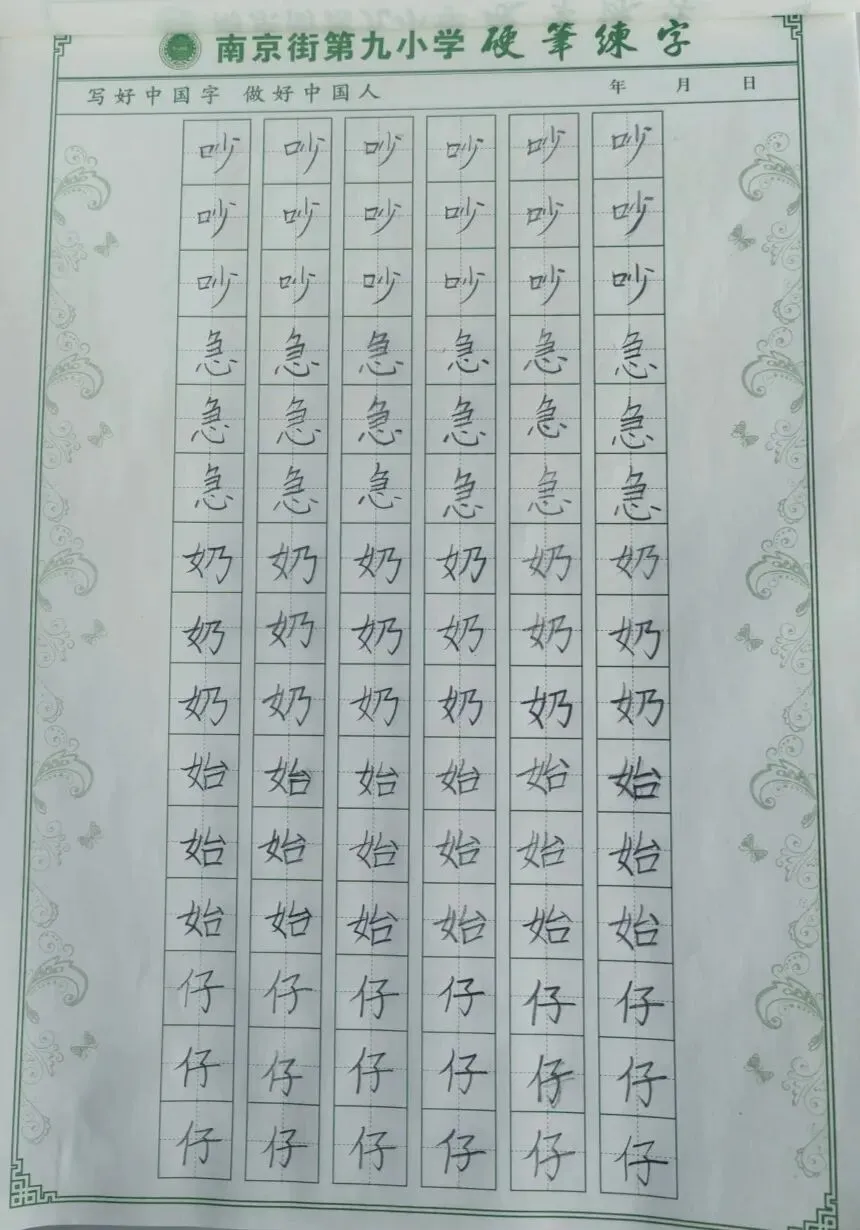 南京街第九小学 硬筆練字
写好中国字 做好中国人 年 月 日
吵 吵 吵 吵 吵 吵
吵 吵 吵 吵 吵 吵
吵 吵 吵 吵 吵 吵
急 急 急 急 急 急
急 急 急 急 急 急
急 急 急 急 急 急
奶 奶 奶 奶 奶 奶
奶 奶 奶 奶 奶 奶
奶 奶 奶 奶 奶 奶
始 始 始 始 始 始
始 始 始 始 始 始
始 始 始 始 始 始
仔 仔 仔 仔 仔 仔
仔 仔 仔 仔 仔 仔
仔 仔 仔 仔 仔 仔